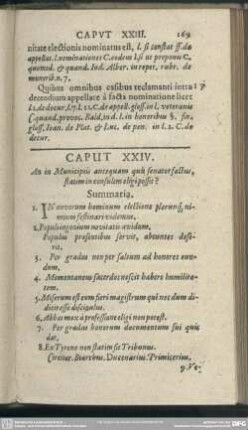 CAPVT XXIII. 169
nitate electionis nominatus est, l. si constat ff. de
appellat. l. nominationes C. eodem l. si ut proponis C.
quemod. & quand. Iud. Alber. in repet. rubr. de
munerib. n. 7.
Quibus omnibus casibus reclamanti intra
decendium appellare à facta nominatione licet
l. 2. de decur. l. 7. l. 11. C. de appell. gloss. in l. veteranis
C. quand. provoc. Bald. in d. l. in honoribus §. fin.
gloss. Ioan. de Plat. & Luc. de pen. in l. 2. C. de
decur.
CAPUT XXIV.
An in Municipiis antequam quis senator factus,
statim in consulem eligi possit?
Summaria.
1. IN novorum hominum electione plerunq; ni-
mium festinari videmus.
2. Populi ingenium novitatis avidum.
Populus presentibus servit, absentes dese-
rit.
3. Per gradus non per saltum ad honores eun-
dum.
4. Momentaneus sacerdos nescit habere humilita-
tem.
5. Miserum est eum fieri magistrum qui nec dum di-
dicit esse discipulus.
6. Abbas mox à professione eligi non potest.
7. Per gradus bonorum documentum sui quis
dat.
8. Ex Tyrone non statim fit Tribunus.
Circitor. Biarchus. Ducenarius. Primicerius.
9. Ve-